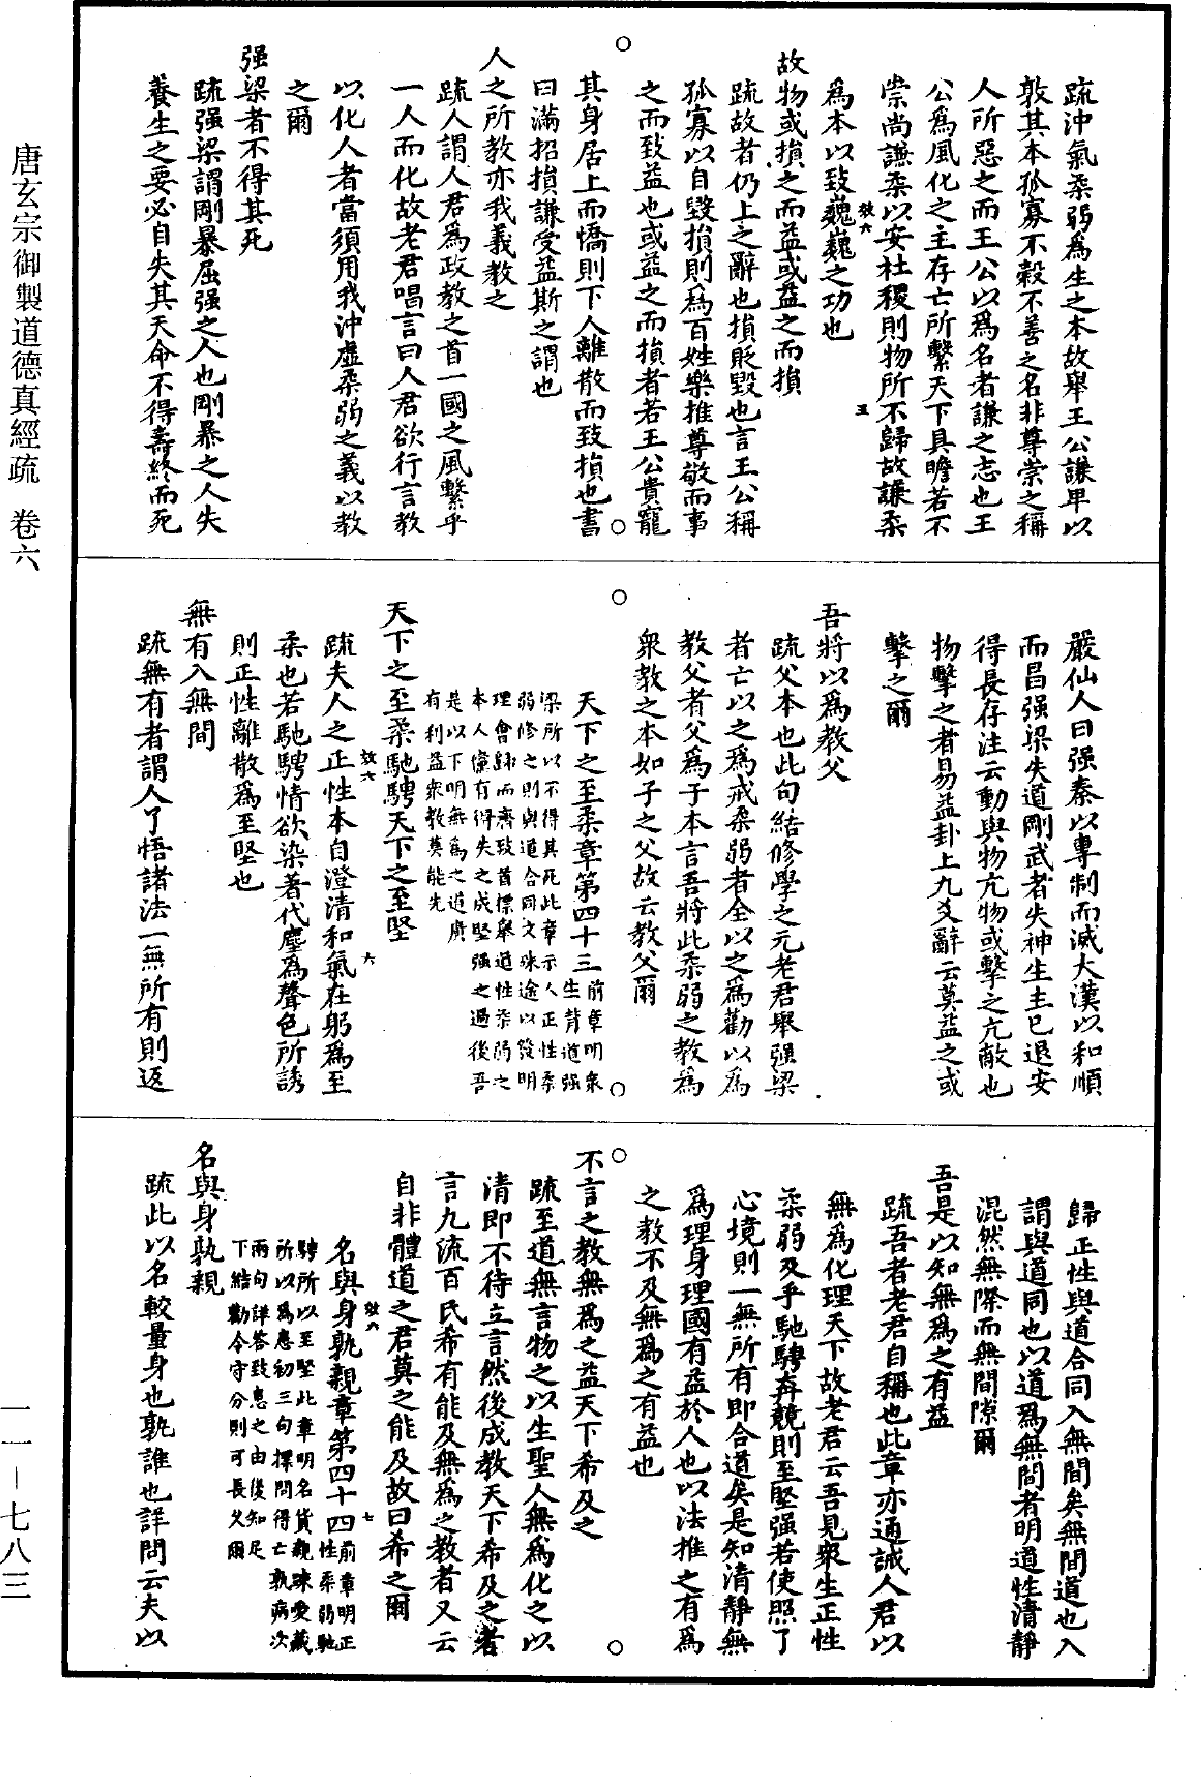 唐玄宗御製道德真經疏　卷六
疏沖氣柔弱為生之本故舉王公謙卑以
敦其本孤寡不穀不善之名非尊崇之稱
人所惡之而王公以為名者謙之志也王
公為風化之主存亡所繫天下具瞻若不
崇尚謙柔以安社稷則物所不歸故謙柔
為本以致巍巍之功也
效六
五
故物或損之而益或益之而損
疏故者仍上之辭也損貶毀也言王公稱
孤寡以自毀損則為百姓樂推尊敬而事
之而致益也或益之而損者若王公貴寵
其身居上而憍則下人離散而致損也書
曰滿招損謙受益斯之謂也
人之所教亦我義教之
疏人謂人君為政教之首一國之風繫乎
一人而化故老君唱言曰人君欲行言教
以化人者當須用我沖虛柔弱之義以教
之爾
强梁者不得其死
疏强梁謂剛暴屈强之人也剛暴之人失
養生之要必自失其天命不得壽終而死
嚴仙人曰强秦以專制而滅大漢以和順
而昌强梁失道剛武者失神生主已退安
得長存注云動與物亢物或擊之亢敵也
物擊之者易益卦上九爻辭云莫益之或
擊之爾
吾將以為教父
疏父本也此句結修學之元老君舉强梁
者亡以之為戒柔弱者全以之為勸以為
教父者父為子本言吾將此柔弱之教為
衆教之本如子之父故云教父爾
天下之至柔章第四十三
前章明衆
生背道强
梁所以不得其死此章示人正性柔
弱修之則與道合同文殊途以發明
理會歸而齊致首標舉道性柔弱之
本人儻有得失之成堅强之過後吾
是以下明無為之道廣
有利益衆教莫能先
天下之至柔馳騁天下之至堅
效六
六
疏夫人之正性本自澄清和氣在躬為至
柔也若馳騁情欲染著代塵為聲色所誘
則正性離散為至堅也
無有入無間
疏無有者謂人了悟諸法一無所有則返
歸正性與道合同入無間矣無間道也入
謂與道同也以道為無間者明道性清靜
混然無際而無間隙爾
吾是以知無為之有益
疏吾者老君自稱也此章亦通誡人君以
無為化理天下故老君云吾見衆生正性
柔弱及乎馳騁奔競則至堅强若使照了
心境則一無所有即合道矣是知清靜無
為理身理國有益於人也以法推之有為
之教不及無為之有益也
不言之教無為之益天下希及之
疏至道無言物之以生聖人無為化之以
清即不待立言然後成教天下希及之者
言九流百氏希有能及無為之教者又云
自非體道之君莫之能及故曰希之爾
名與身孰親章第四十四
效六
七
前章明正
性柔弱馳
騁所以至堅此章明名貨親疎愛藏
所以為患初三句擇問得亡孰病次
兩句詳答致患之由後知足
下結勸令守分則可長久爾
名與身孰親
疏此以名較量身也孰誰也詳問云夫以
一一－七八三